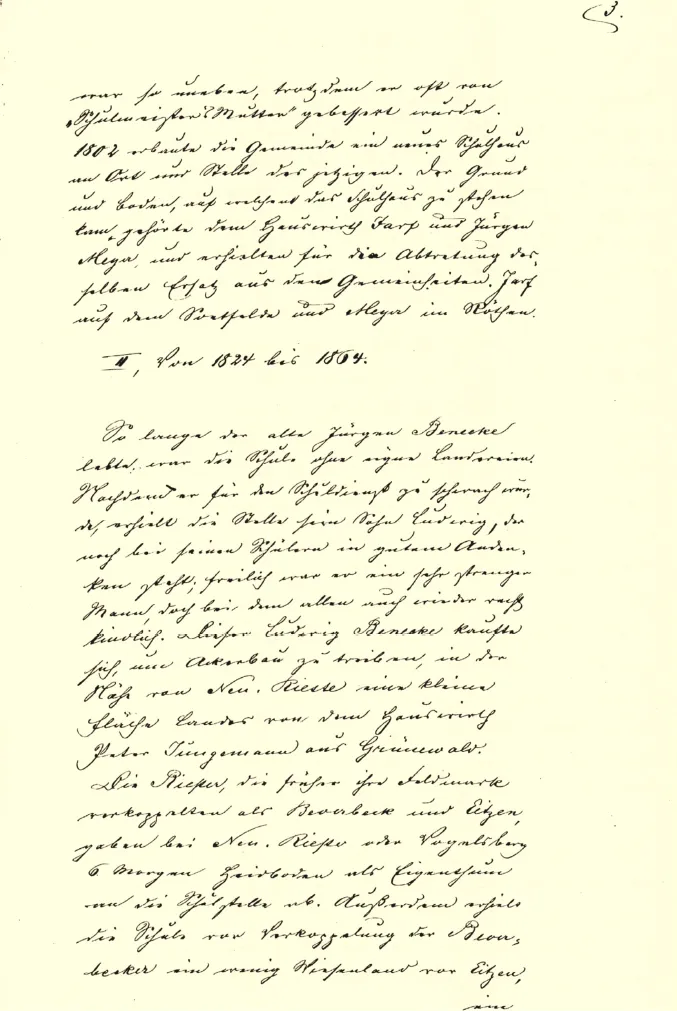 3.
war so uneben, trotzdem er oft von
„Schulmeister's Mutter“ gebessert wurde.
1802 erbaute die Gemeinde ein neues Schulhaus
an Ort und Stelle des jetzigen. Der Grund
und Boden, auf welchem das Schulhaus zu stehen
kam, gehörte dem Hauswirth Jarf und Jürgen
Meyer, und erhielten für die Abtretung des-
selben Ersatz aus den Gemeinheiten. Jarf
auf dem und Meyer im Röthen.
II, Von 1824 bis 1864.
So lange der alte Jürgen Benecke
lebte, war die Schule ohne eigne Ländereien.
Nachdem er für den Schuldienst zu schwach wur-
de, erhielt die Stelle sein Sohn Ludwig, der
noch bei seinen Schülern in gutem Anden-
ken steht; freilich war er ein sehr strenger
Mann, doch bei dem allen auch wieder recht
kindlich. Dieser Ludwig Benecke kaufte
sich, um Ackerbau zu treiben, in der
Nähe von Neu. Rieste eine kleine
Fläche Landes von dem Hauswirth
Peter Jungemann aus Grünewald.
Die Riester, die früher ihre Feldmark
verkoppelten als Beverbeck und Eitzen,
gaben bei Neu. Rieste oder Vogelsberg
6 Morgen Heidboden als Eigenthum
an die Schulstelle ab. Außerdem erhielt
die Schule vor Verkoppelung der Bever-
becker ein wenig Wiesenland vor Eitzen,
ein